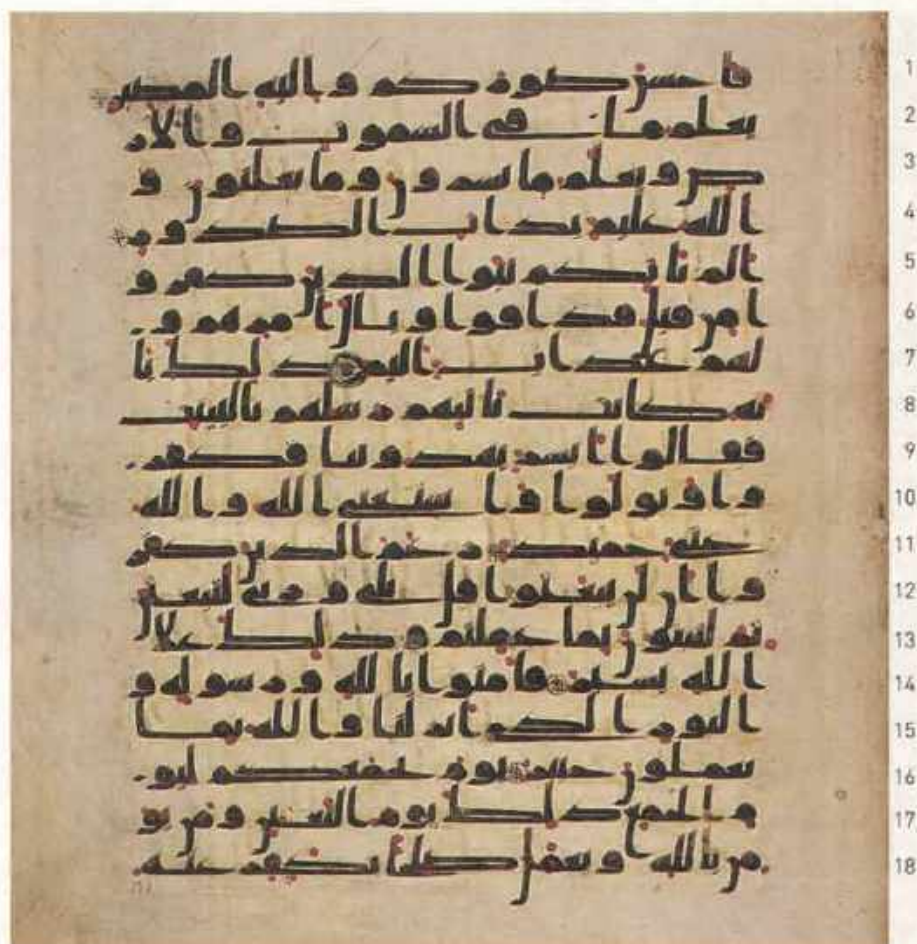 1 فاحسن صوركم واليه المصير
2 يعلم ما في السموت والار
3 ض ويعلم ما تسرون وما تعلنون و
4 الله عليم بذات الصدور
5 الم ياتكم نبوا الذين كفرو
6 ا من قبل فذاقوا وبال امرهم و
7 لهم عذاب اليم ذلك با
8 نه كانت تاتيهم رسلهم بالبينت
9 فقالوا ابشر يهدوننا فكفر
10 وا وتولوا واستغنى الله والله
11 غني حميد زعم الذين كفر
12 وا ان لن يبعثوا قل بلى وربي لتبعثن
13 ثم لتنبون بما عملتم وذلك على
14 الله يسير فامنوا بالله ورسوله و
15 النور الذي انزلنا والله بما
16 تعملون خبير يوم يجمعكم ليو
17 م الجمع ذلك يوم التغبن ومن يو
18 من بالله ويعمل صلحا يكفر عنه